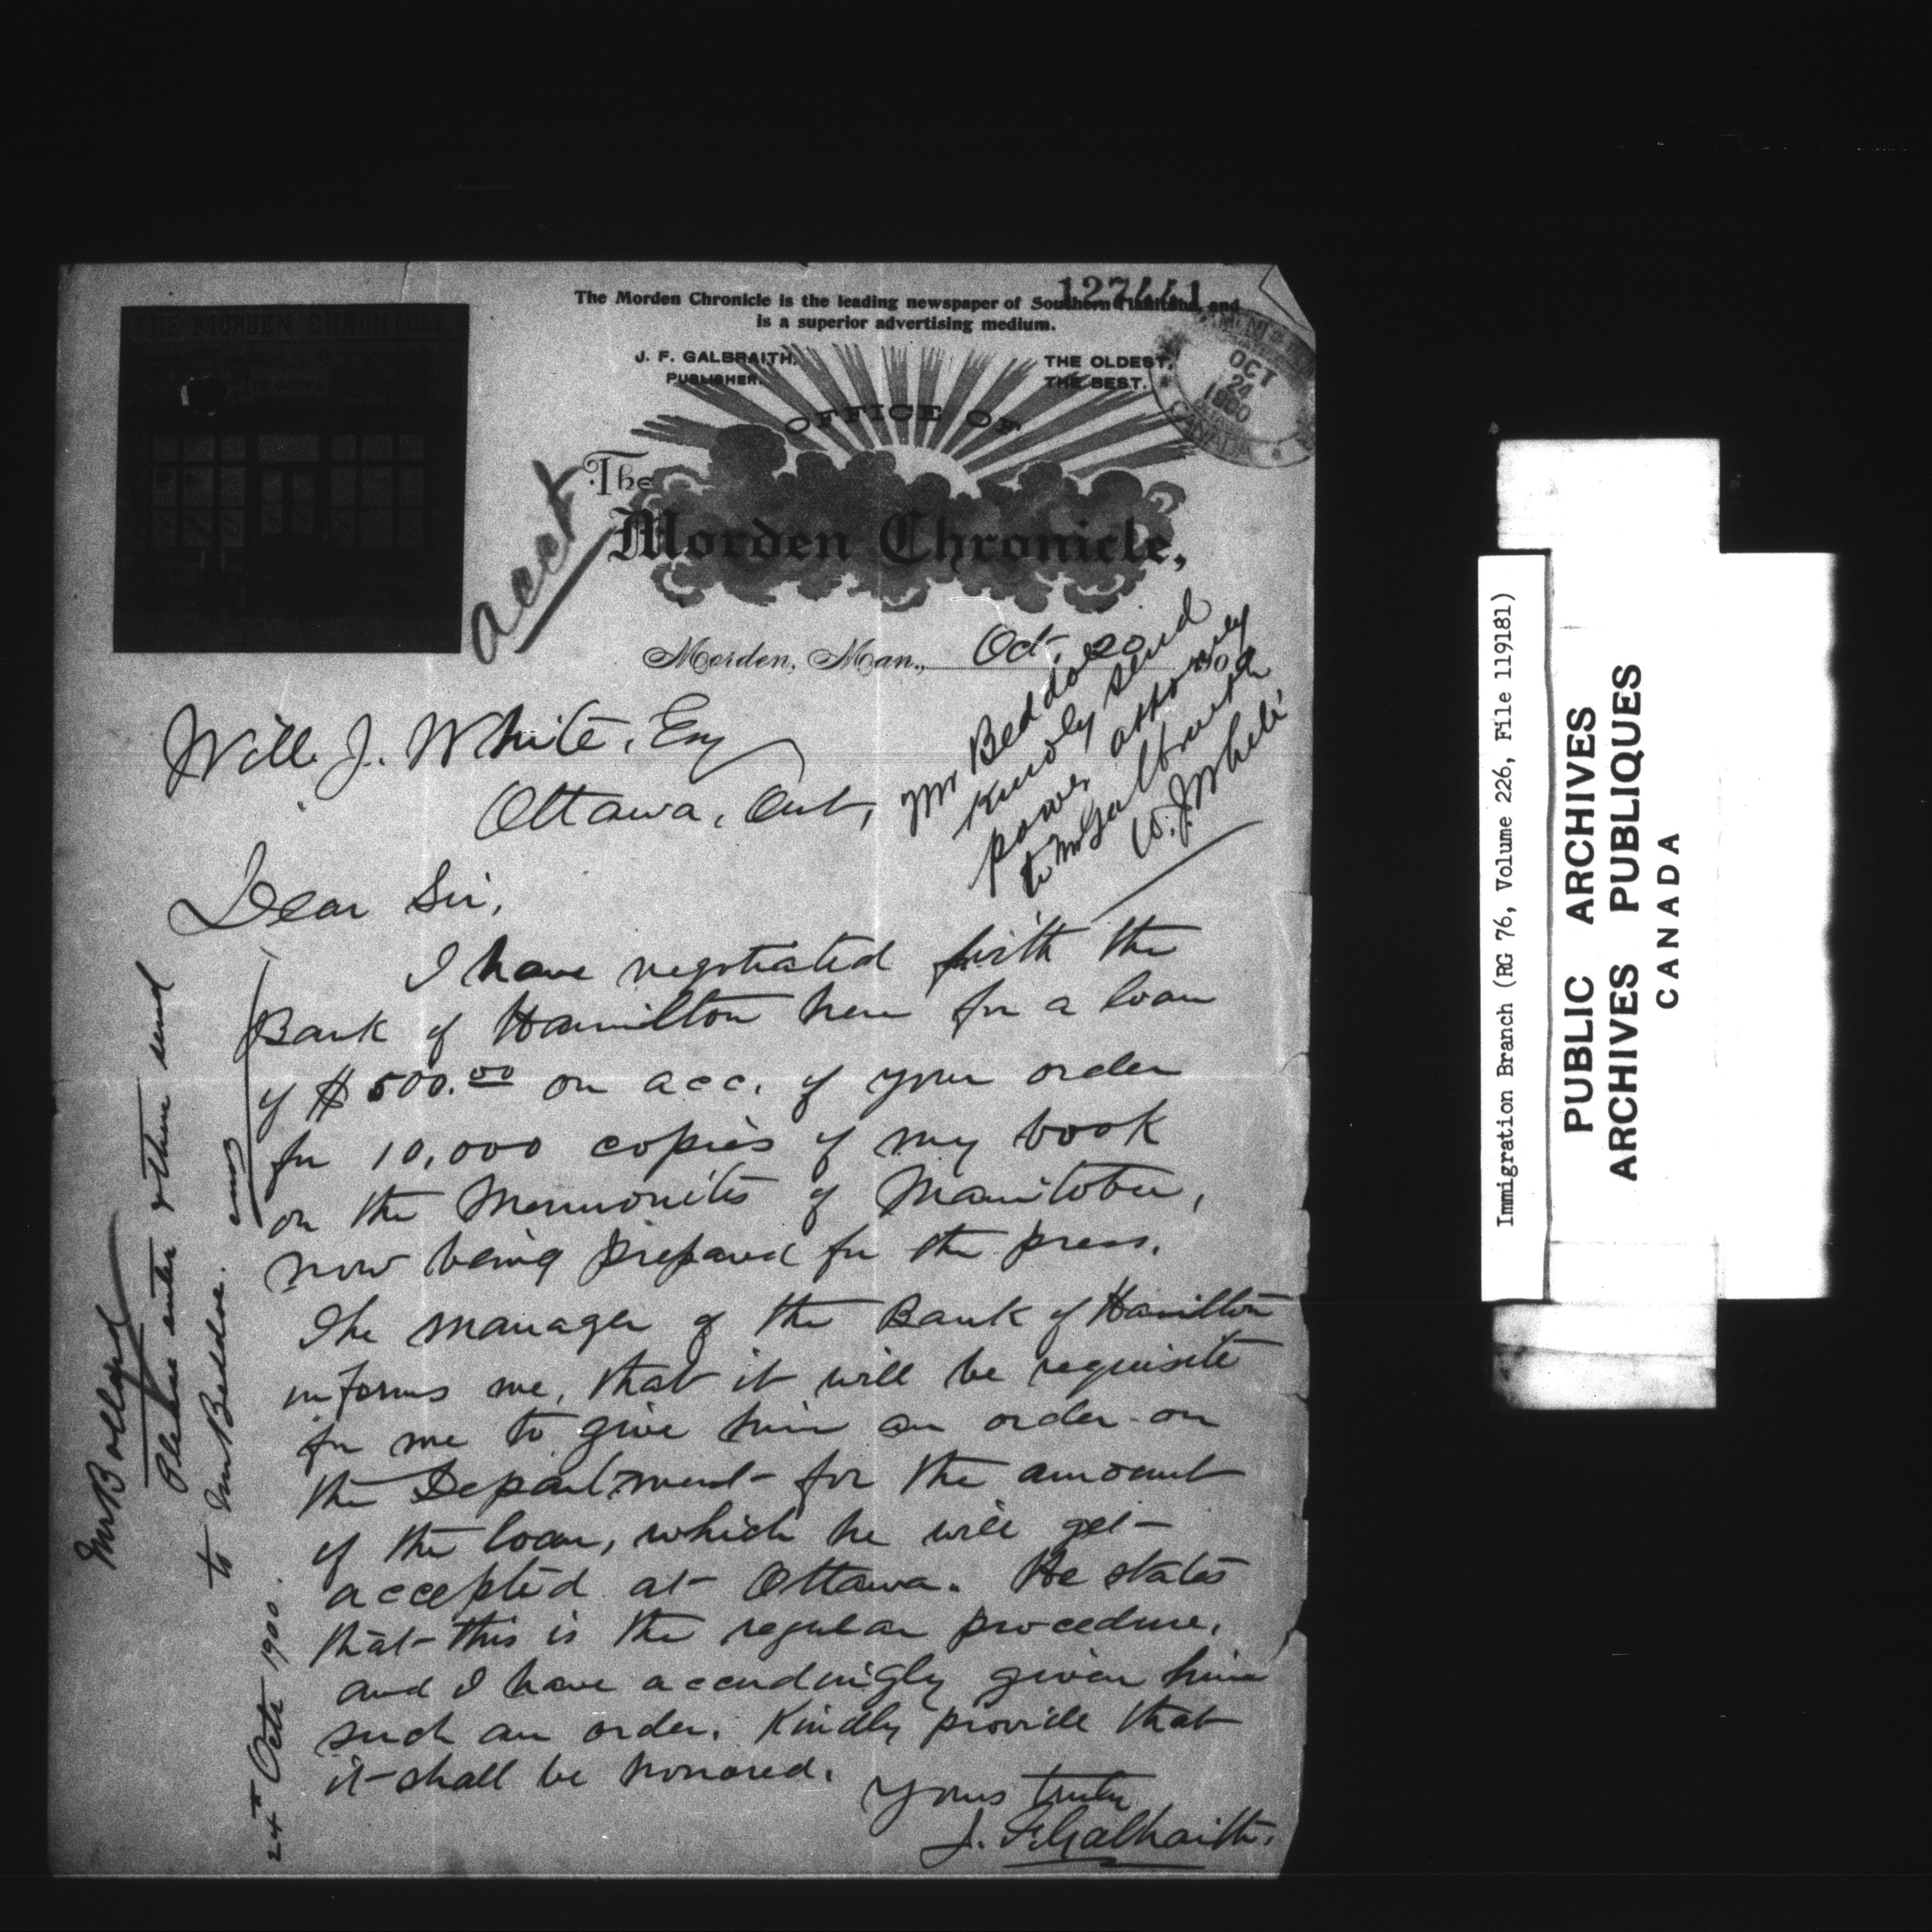 127441
The Morden Chronicle is the leading newspaper of Southern Manitoba, and
is a superior advertising medium.
THE MORDEN CHRONICLE
J. F. GALBRAITH,
PUBLISHER.
THE OLDEST,
THE BEST.
OCT
24
1900
CANADA
OFFICE OF
The
Morden Chronicle,
Acct
Morden, Man., Oct. 20 190
Will. J. White, Esq
Ottawa, Ont,
Mr Beddoe
Kindly send
power attorney
to Mr Galbraith
W. J. White
Dear Sir,
I have negotiated with the
Bank of Hamilton here for a loan
of $500.00 on acc. of your order
for 10,000 copies of my book
on the Mennonites of Manitoba,
now being prepared for the press.
The manager of the Bank of Hamilton
informs me, that it will be requisite
for me to give him an order on
the Department for the amount
of the loan, which he will get
accepted at Ottawa. He states
that this is the regular procedure,
and I have accordingly given him
such an order. Kindly provide that
it shall be honored.
Yours truly
J. F. Galbraith.
Mr Bolland
Please enter & then send
to Mr Beddoe.
24th Octr 1900.
Immigration Branch (RG 76, Volume 226, File 119181)
PUBLIC ARCHIVES
ARCHIVES PUBLIQUES
CANADA